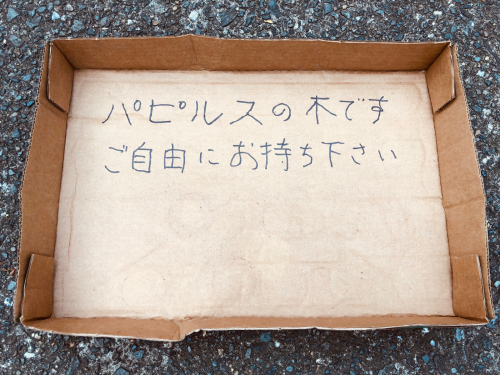 パピルスの木です
ご自由にお持ち下さい